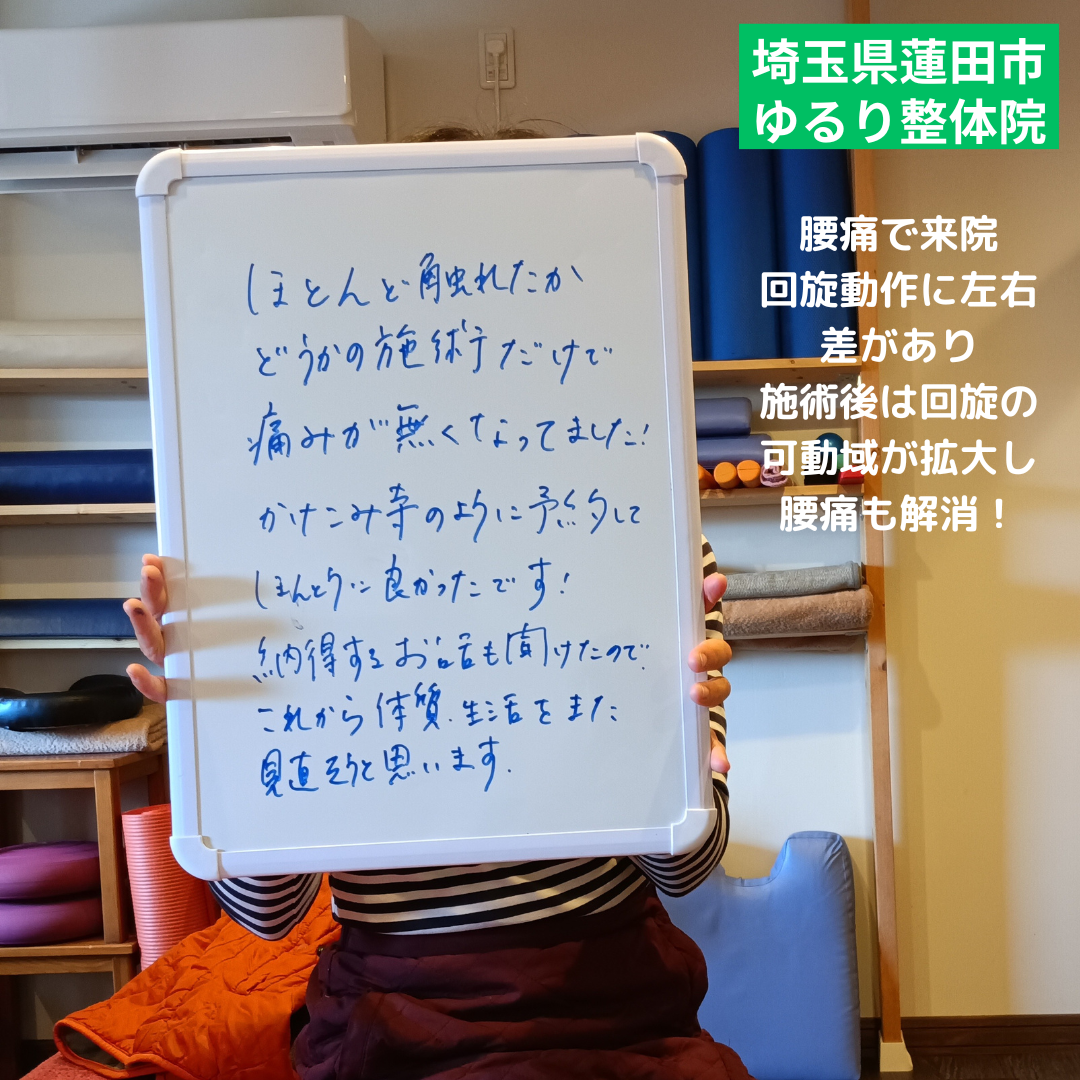 埼玉県蓮田市
ゆるり整体院
腰痛で来院
回旋動作に左右
差があり
施術後は回旋の
可動域が拡大し
腰痛も解消！
ほとんど触れたか
どうかの施術だけで
痛みが無くなってました!
かけこみ寺のように予約して
ほんとうに良かったです!
納得するお話も聞けたので
これから体質、生活をまた
見直そうと思います.